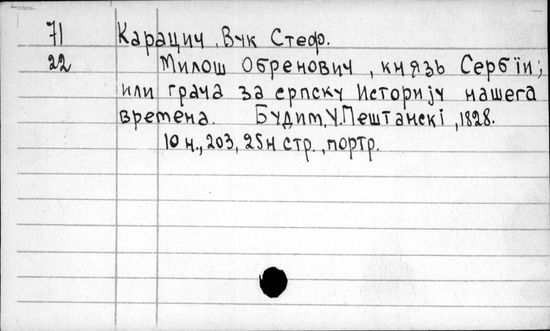 71 Карацич, Вук Стеф.
22 Милош Обренович, князь Сербіи;
или грача за српску Историју нашега
времена. Будим, У.Пештанскі, 1828.
10 н., 203, 25н стр., портр.